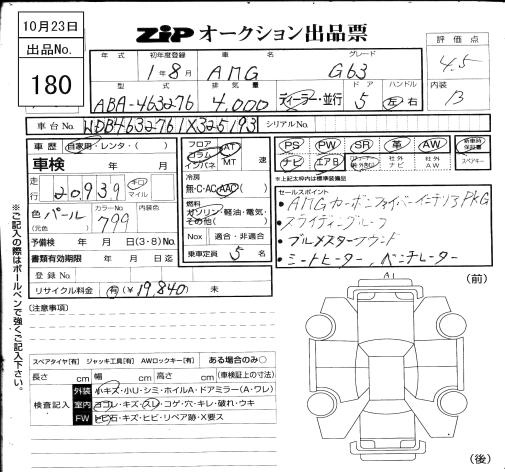 10月23日
出品No.
180
ZIP オークション出品票
評価点
4.5
内装
B
年式 初年度登録 車名 グレード
1年8月 AMG G63
型式 排気量 ドア ハンドル
ABA-463276 4,000 ディーラー・並行 5 左・右
車台No. WDB4632761X325193 シリアルNo.
車歴 自家用・レンタ・( )
車検 年 月
走行 20,939 キロ マイル
色 パール カラーNo. 799 内装色
(元色)
予備検 年 月 日(3・8)No.
書類有効期限 年 月 日迄
登録No.
リサイクル料金 有(¥19,840) 未
フロア コラム インパネ AT MT 速
冷房
無・C・AC・AAC
燃料
ガソリン・軽油・電気・その他( )
Nox 適合・非適合
乗車定員 5 名
PS PW SR 革 AW 新車時保証書
ナビ エアB 社外ナビ 社外AW スペアキー
※上記太枠内は標準装備品
セールスポイント
・AMGカーボンファイバーインテリアPKG
・スライディングルーフ
・ブルメスターサウンド
・シートヒーター、ベンチレーター
※ご記入の際はボールペンで強くご記入下さい。
(注意事項)
A1
(前)
スペアタイヤ[有] ジャッキ工具[有] AWロックキー[有] ある場合のみ○
長さ cm 幅 cm 高さ cm (車検証上の寸法)
検査記入
外装 小キズ・小U・シミ・ホイルA・ドアミラー(A・ワレ)
室内 ヨゴレ・キズ・スレ・コゲ・穴・キレ・破れ・ウキ
FW トビ石・キズ・ヒビ・リペア跡・X要ス
(後)